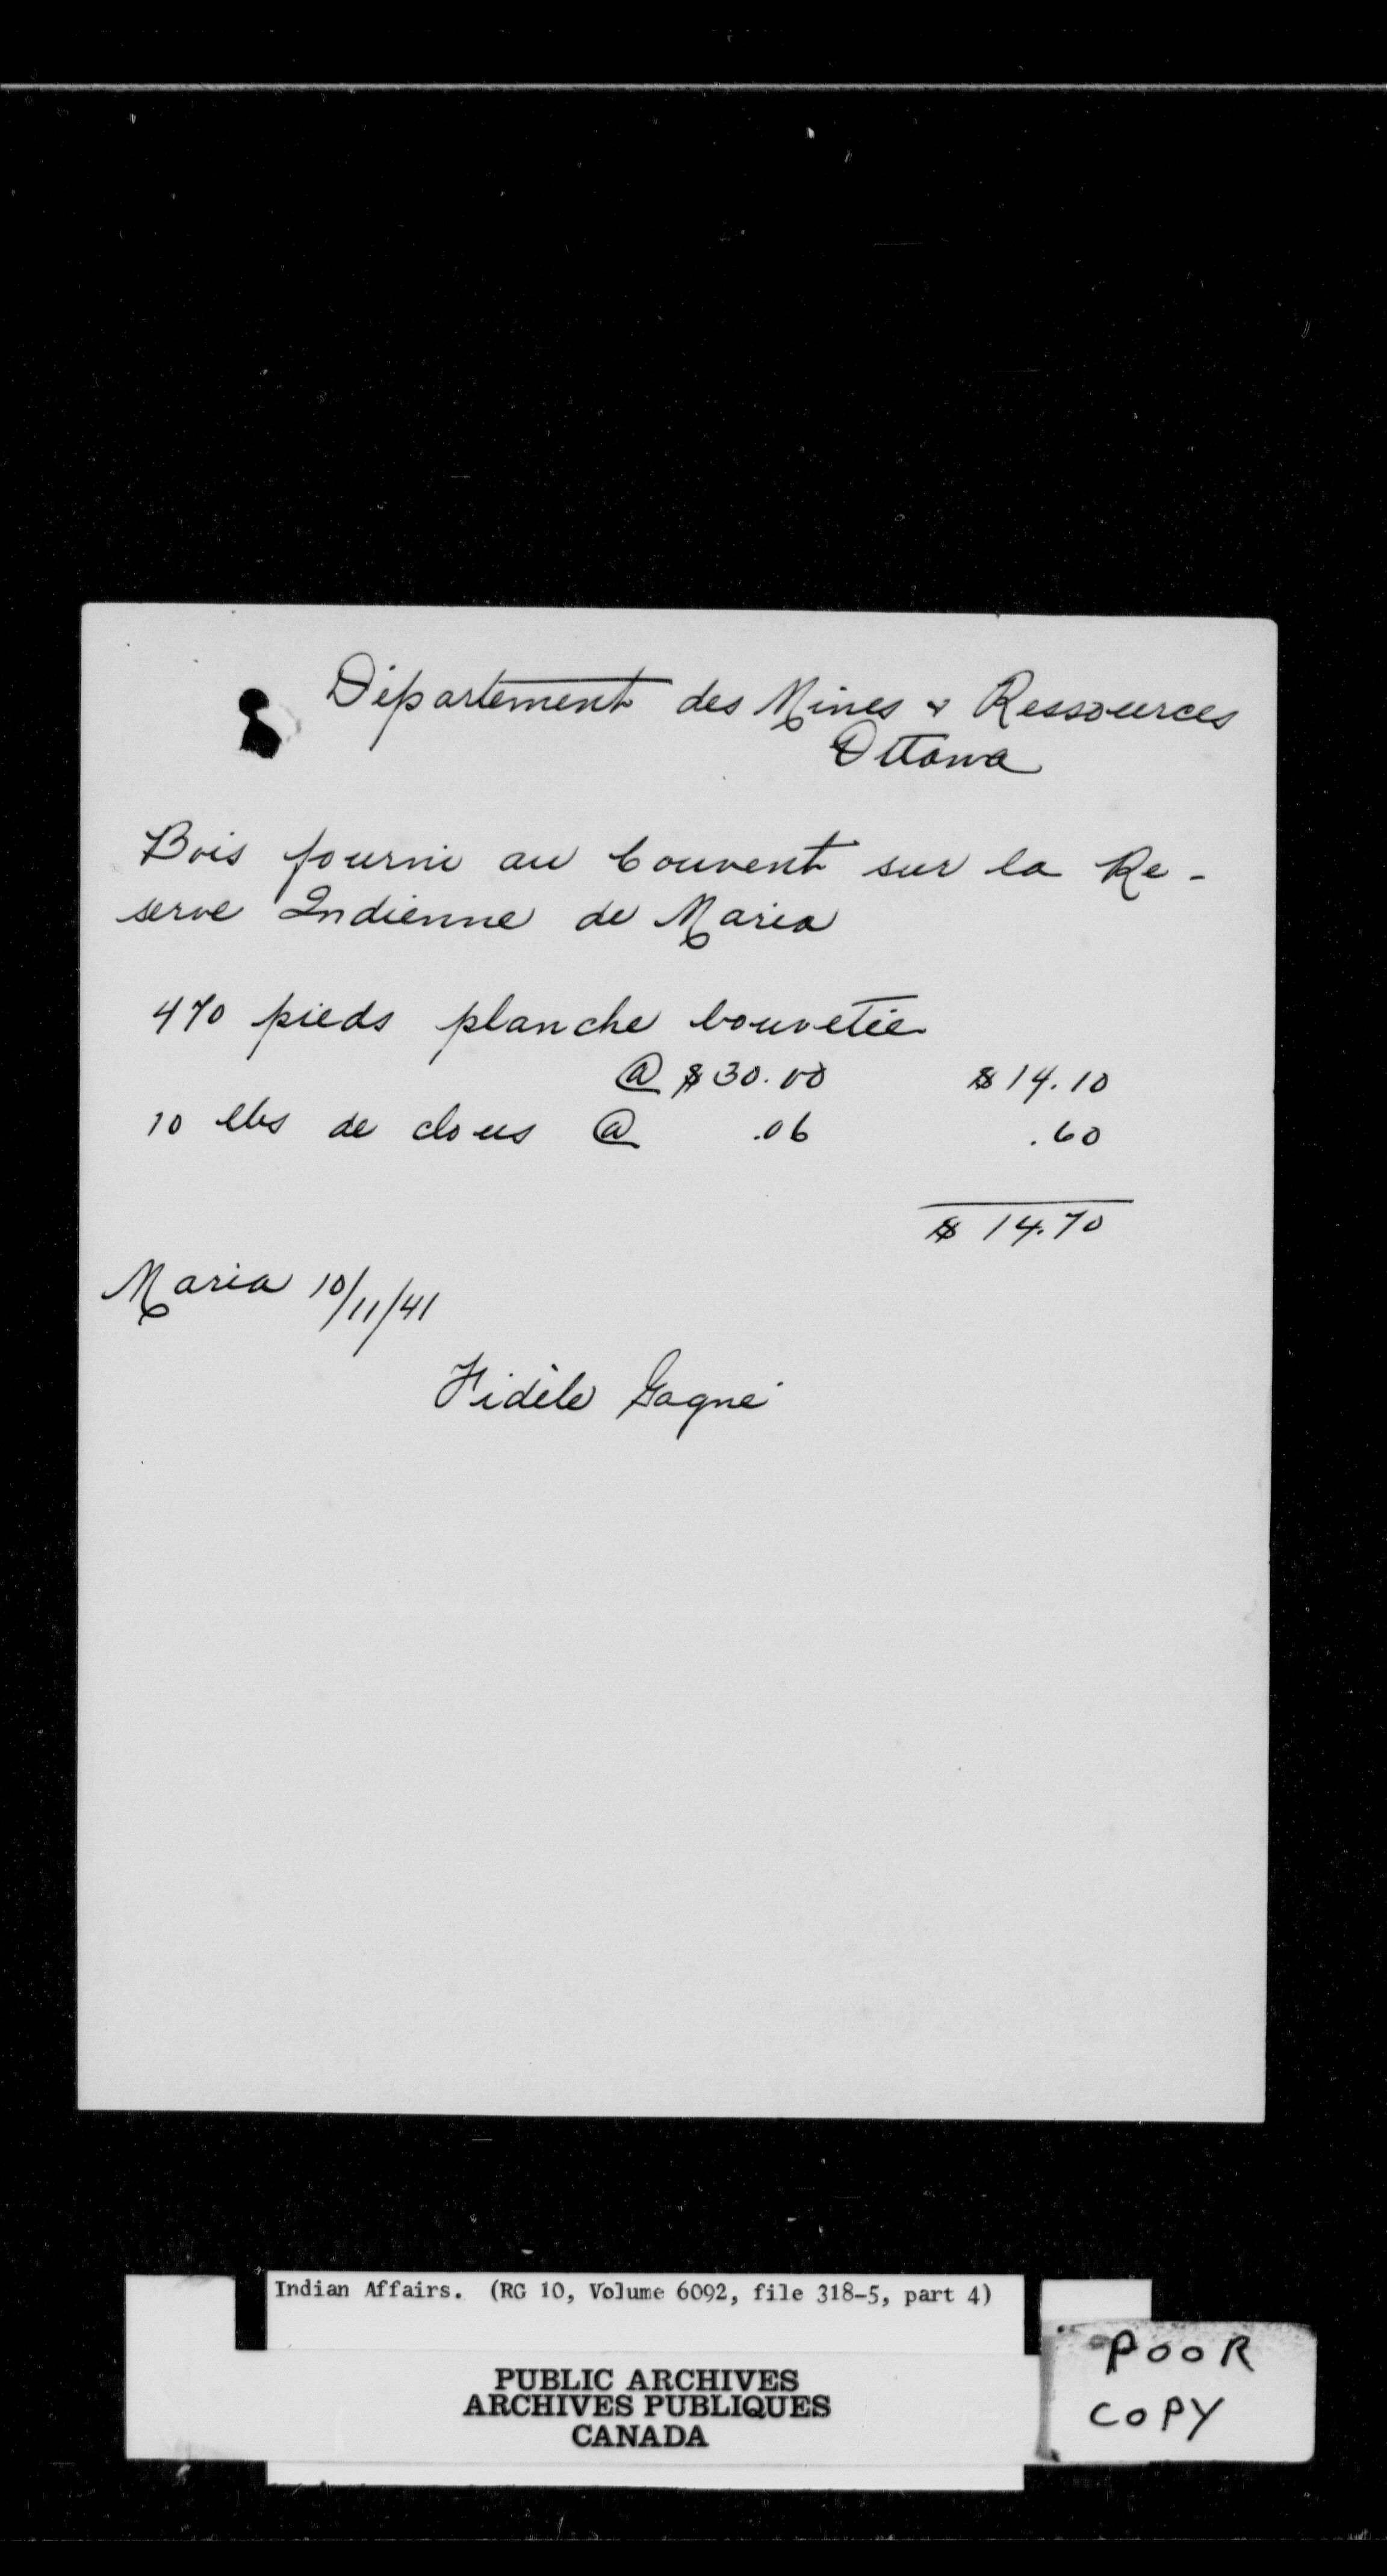 Département des Mines & Ressources
Ottawa
Bois fourni au Couvent sur la Re-
serve Indienne de Maria
470 pieds planche bouvetée
@ $30.00 $14.10
10 lbs de clous @ .06 .60
$ 14.70
Maria 10/11/41
Fidèle Gagné
Indian Affairs. (RG 10, Volume 6092, file 318-5, part 4)
PUBLIC ARCHIVES
ARCHIVES PUBLIQUES
CANADA
POOR
COPY